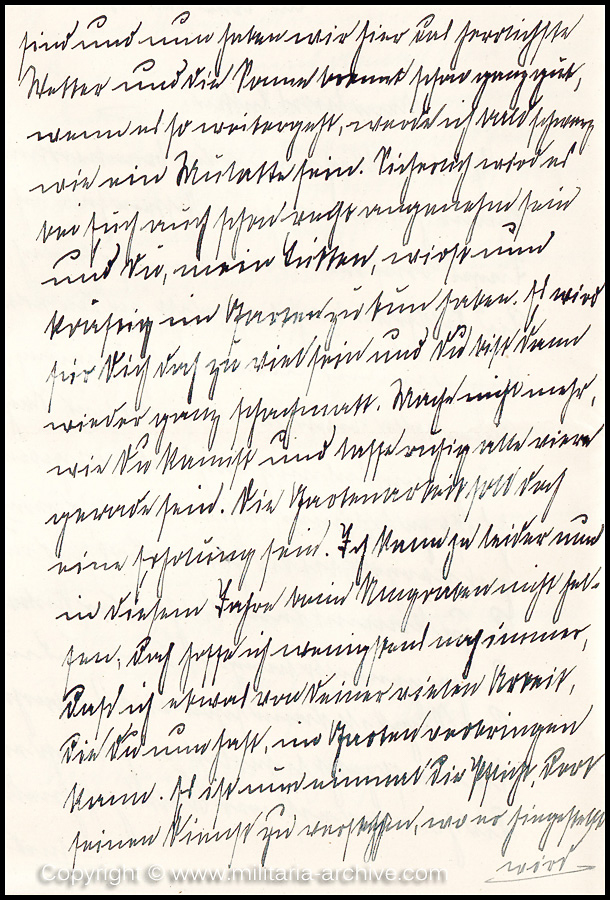 sind und nun haben wir hier das herrlichste
Wetter und die Sonne brennt schon ganz gut,
wenn es so weitergeht, werde ich bald schwarz
wie ein Mulatte sein. Sicherlich wird es
bei Euch auch schon recht angenehm sein
und Du, mein Lieben, wirst nun
kräftig im Garten zu tun haben. Es wird
für Dich doch zu viel sein und Du bist dann
wieder ganz schachmatt. Mache nicht mehr,
wie Du kannst und lasse ruhig alle viere
gerade sein. Die Gartenarbeit soll doch
eine Erholung sein. Ich kann ja leider nun
in diesem Jahre beim Umgraben nicht hel-
fen, doch hoffe ich wenigstens noch immer,
daß ich etwas von Deiner vielen Arbeit,
die Du nun hast, im Garten verbringen
kann. Es ist nun einmal die Pflicht, dort
seinen Dienst zu versehen, wo er hingestellt
wird
Copyright © www.militaria-archive.com